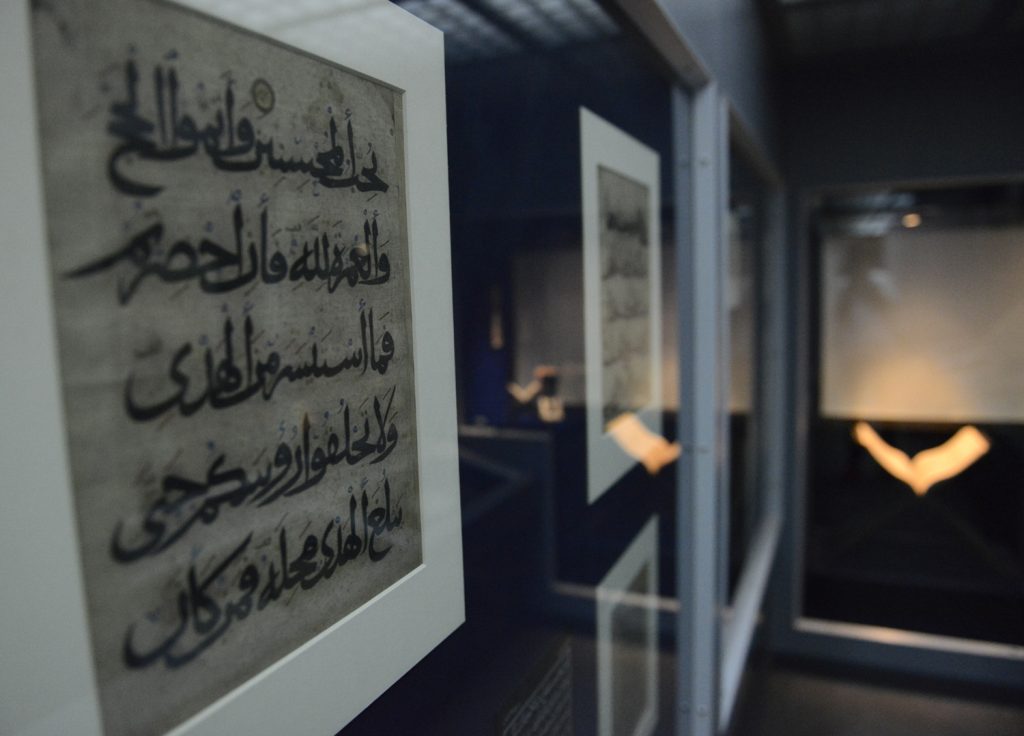 يُحِبُّ الْمُحْسِنِينَ وَأَتِمُّوا الْحَجَّ
وَالْعُمْرَةَ لِلَّهِ فَإِنْ أُحْصِرْتُمْ
فَمَا اسْتَيْسَرَ مِنَ الْهَدْيِ
وَلَا تَحْلِقُوا رُءُوسَكُمْ حَتَّى
يَبْلُغَ الْهَدْيُ مَحِلَّهُ فَمَنْ كَانَ